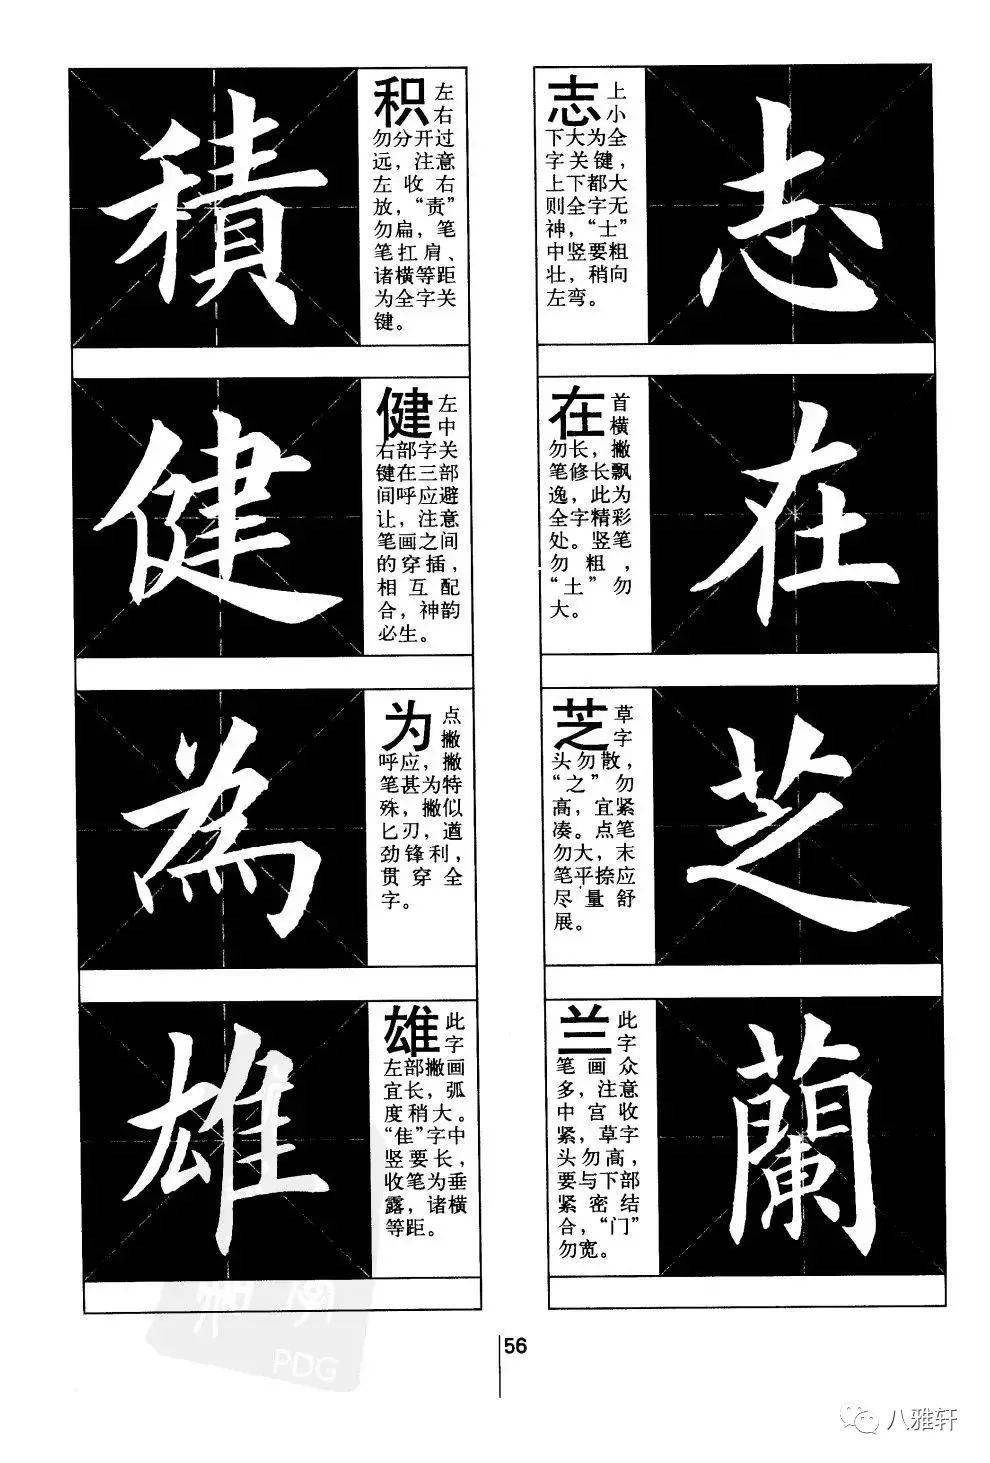 積
积 左右
勿分开过
远，注意
左收右
放，“责”
勿扁，笔
笔扛肩、
诸横等距
为全字关
键。
健
健 左中
右部字关
键在三部
间呼应避
让，注意
笔画之间
的穿插，
相互配
合，神韵
必生。
為
为 点撇
呼应，撇
笔甚为特
殊，撇似
匕刃，遒
劲锋利，
贯穿全
字。
雄
雄 此字
左部撇画
宜长，弧
度稍大。
“隹”字中
竖要长，
收笔为垂
露，诸横
等距。
志 上小
下大为全
字关键，
上下都大
则全字无
神，“士”
中竖要粗
壮，稍向
左弯。
志
在 首横
勿长，撇
笔修长飘
逸，此为
全字精彩
处。竖笔
勿粗，
“土”勿
大。
在
芝 草字
头勿散，
“之”勿
高，宜紧
凑。点笔
勿大，末
笔平捺应
尽量舒
展。
芝
兰 此字
笔画众
多，注意
中宫收
紧，草字
头勿高，
要与下部
紧密结
合，“门”
勿宽。
蘭
56
PDG
八雅轩